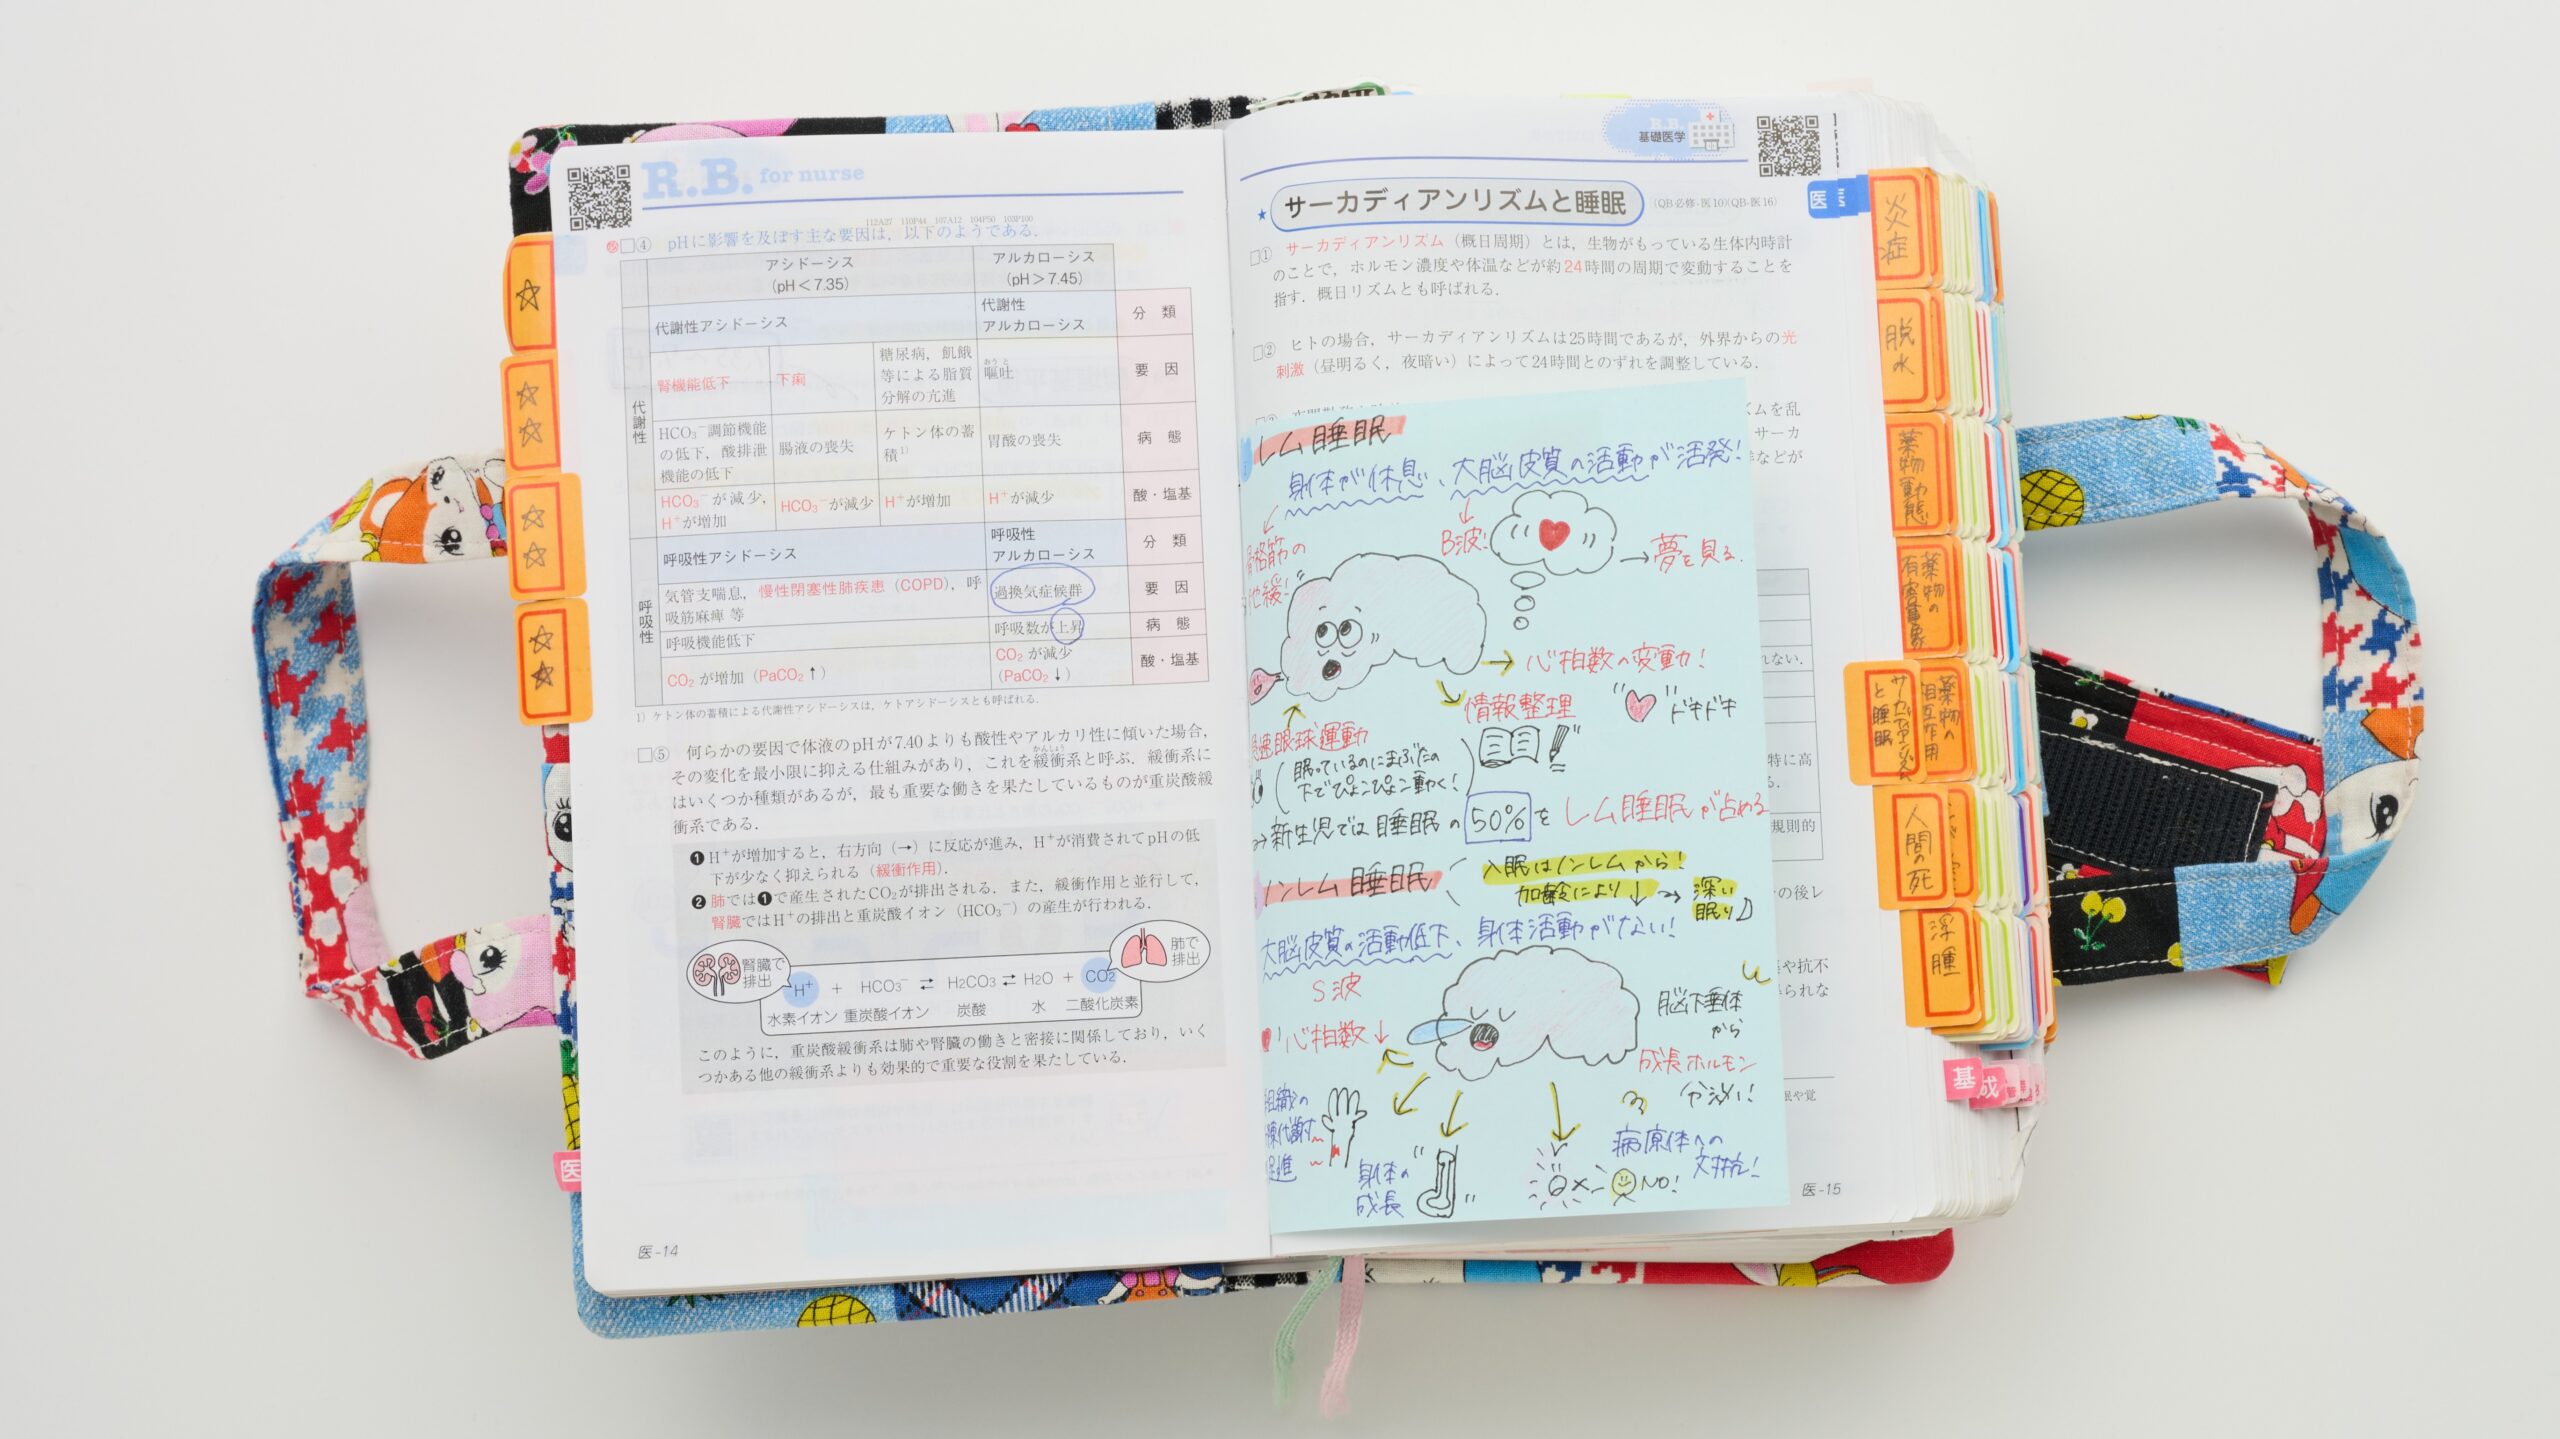 R.B. for nurse
112A27 110P44 107A12 104P50 103P100
□④ pHに影響を及ぼす主な要因は，以下のようである．
アシドーシス
（pH＜7.35）
アルカローシス
（pH＞7.45）
代謝性
代謝性アシドーシス
代謝性
アルカローシス
分類
腎機能低下
下痢
糖尿病，飢餓
等による脂質
分解の亢進
おうと
嘔吐
要因
HCO₃⁻調節機能
の低下，酸排泄
機能の低下
腸液の喪失
ケトン体の蓄
積¹⁾
胃酸の喪失
病態
HCO₃⁻が減少，
H⁺が増加
HCO₃⁻が減少
H⁺が増加
H⁺が減少
酸・塩基
呼吸性
呼吸性アシドーシス
呼吸性
アルカローシス
分類
気管支喘息，慢性閉塞性肺疾患（COPD），呼
吸筋麻痺 等
過換気症候群
要因
呼吸機能低下
呼吸数が上昇
病態
CO₂が増加（PaCO₂↑）
CO₂が減少
（PaCO₂↓）
酸・塩基
1）ケトン体の蓄積による代謝性アシドーシスは，ケトアシドーシスとも呼ばれる．
□⑤ 何らかの要因で体液のpHが7.40よりも酸性やアルカリ性に傾いた場合，
かんしょう
その変化を最小限に抑える仕組みがあり，これを緩衝系と呼ぶ．緩衝系に
はいくつか種類があるが，最も重要な働きを果たしているものが重炭酸緩
衝系である．
❶ H⁺が増加すると，右方向（→）に反応が進み，H⁺が消費されてpHの低
下が少なく抑えられる（緩衝作用）．
❷ 肺では❶で産生されたCO₂が排出される．また，緩衝作用と並行して，
腎臓ではH⁺の排出と重炭酸イオン（HCO₃⁻）の産生が行われる．
腎臓で
排出
肺で
排出
H⁺ ＋ HCO₃⁻ ⇄ H₂CO₃ ⇄ H₂O ＋ CO₂
水素イオン 重炭酸イオン 炭酸 水 二酸化炭素
このように，重炭酸緩衝系は肺や腎臓の働きと密接に関係しており，いく
つかある他の緩衝系よりも効果的で重要な役割を果たしている．
医-14
医
基礎医学
サーカディアンリズムと睡眠
（QB必修-医10）（QB-医16）
□① サーカディアンリズム（概日周期）とは，生物がもっている生体内時計
のことで，ホルモン濃度や体温などが約24時間の周期で変動することを
指す．概日リズムとも呼ばれる．
□② ヒトの場合，サーカディアンリズムは25時間であるが，外界からの光
刺激（昼明るく，夜暗い）によって24時間とのずれを調整している．
ズムを乱
サーカ
などが
れない．
特に高
規則的
の後レ
や抗不
られな
眠や覚
レム睡眠
身体が休息、大脳皮質の活動が活発!
骨格筋の
弛緩!
B波!
→夢を見る.
心拍数の変動!
情報整理
ドキドキ
急速眼球運動
(眠っているのにまぶたの
下でぴょこぴょこ動く!)
→新生児では睡眠の50%をレム睡眠が占める
ノンレム睡眠
入眠はノンレムから!
加齢により↓→深い
眠り
大脳皮質の活動低下、身体活動がない!
S波
心拍数↓
脳下垂体
から
成長ホルモン
分泌!
組織の
代謝
促進
身体の
成長
NO!
病原体への
抵抗!
医-15
医
炎症
脱水
薬物動態
薬物の
有害事象
薬物の
相互作用
サーカディアンリズム
と睡眠
人間の死
浮腫
基
成